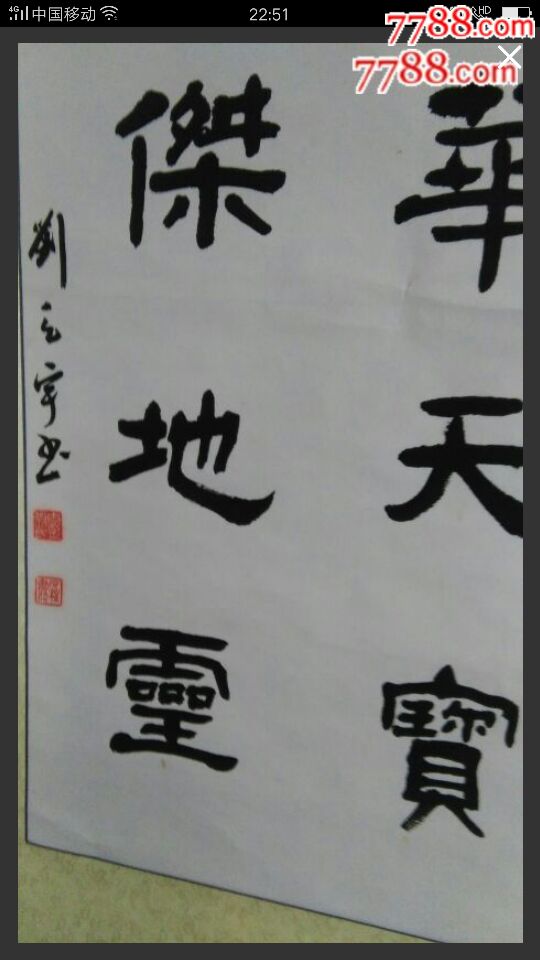 中国移动
22:51
HD
7788.com
7788.com
華天寶
傑地靈
劉立宇书